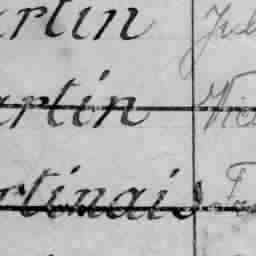 artin Jul
artin Vic
rtinais